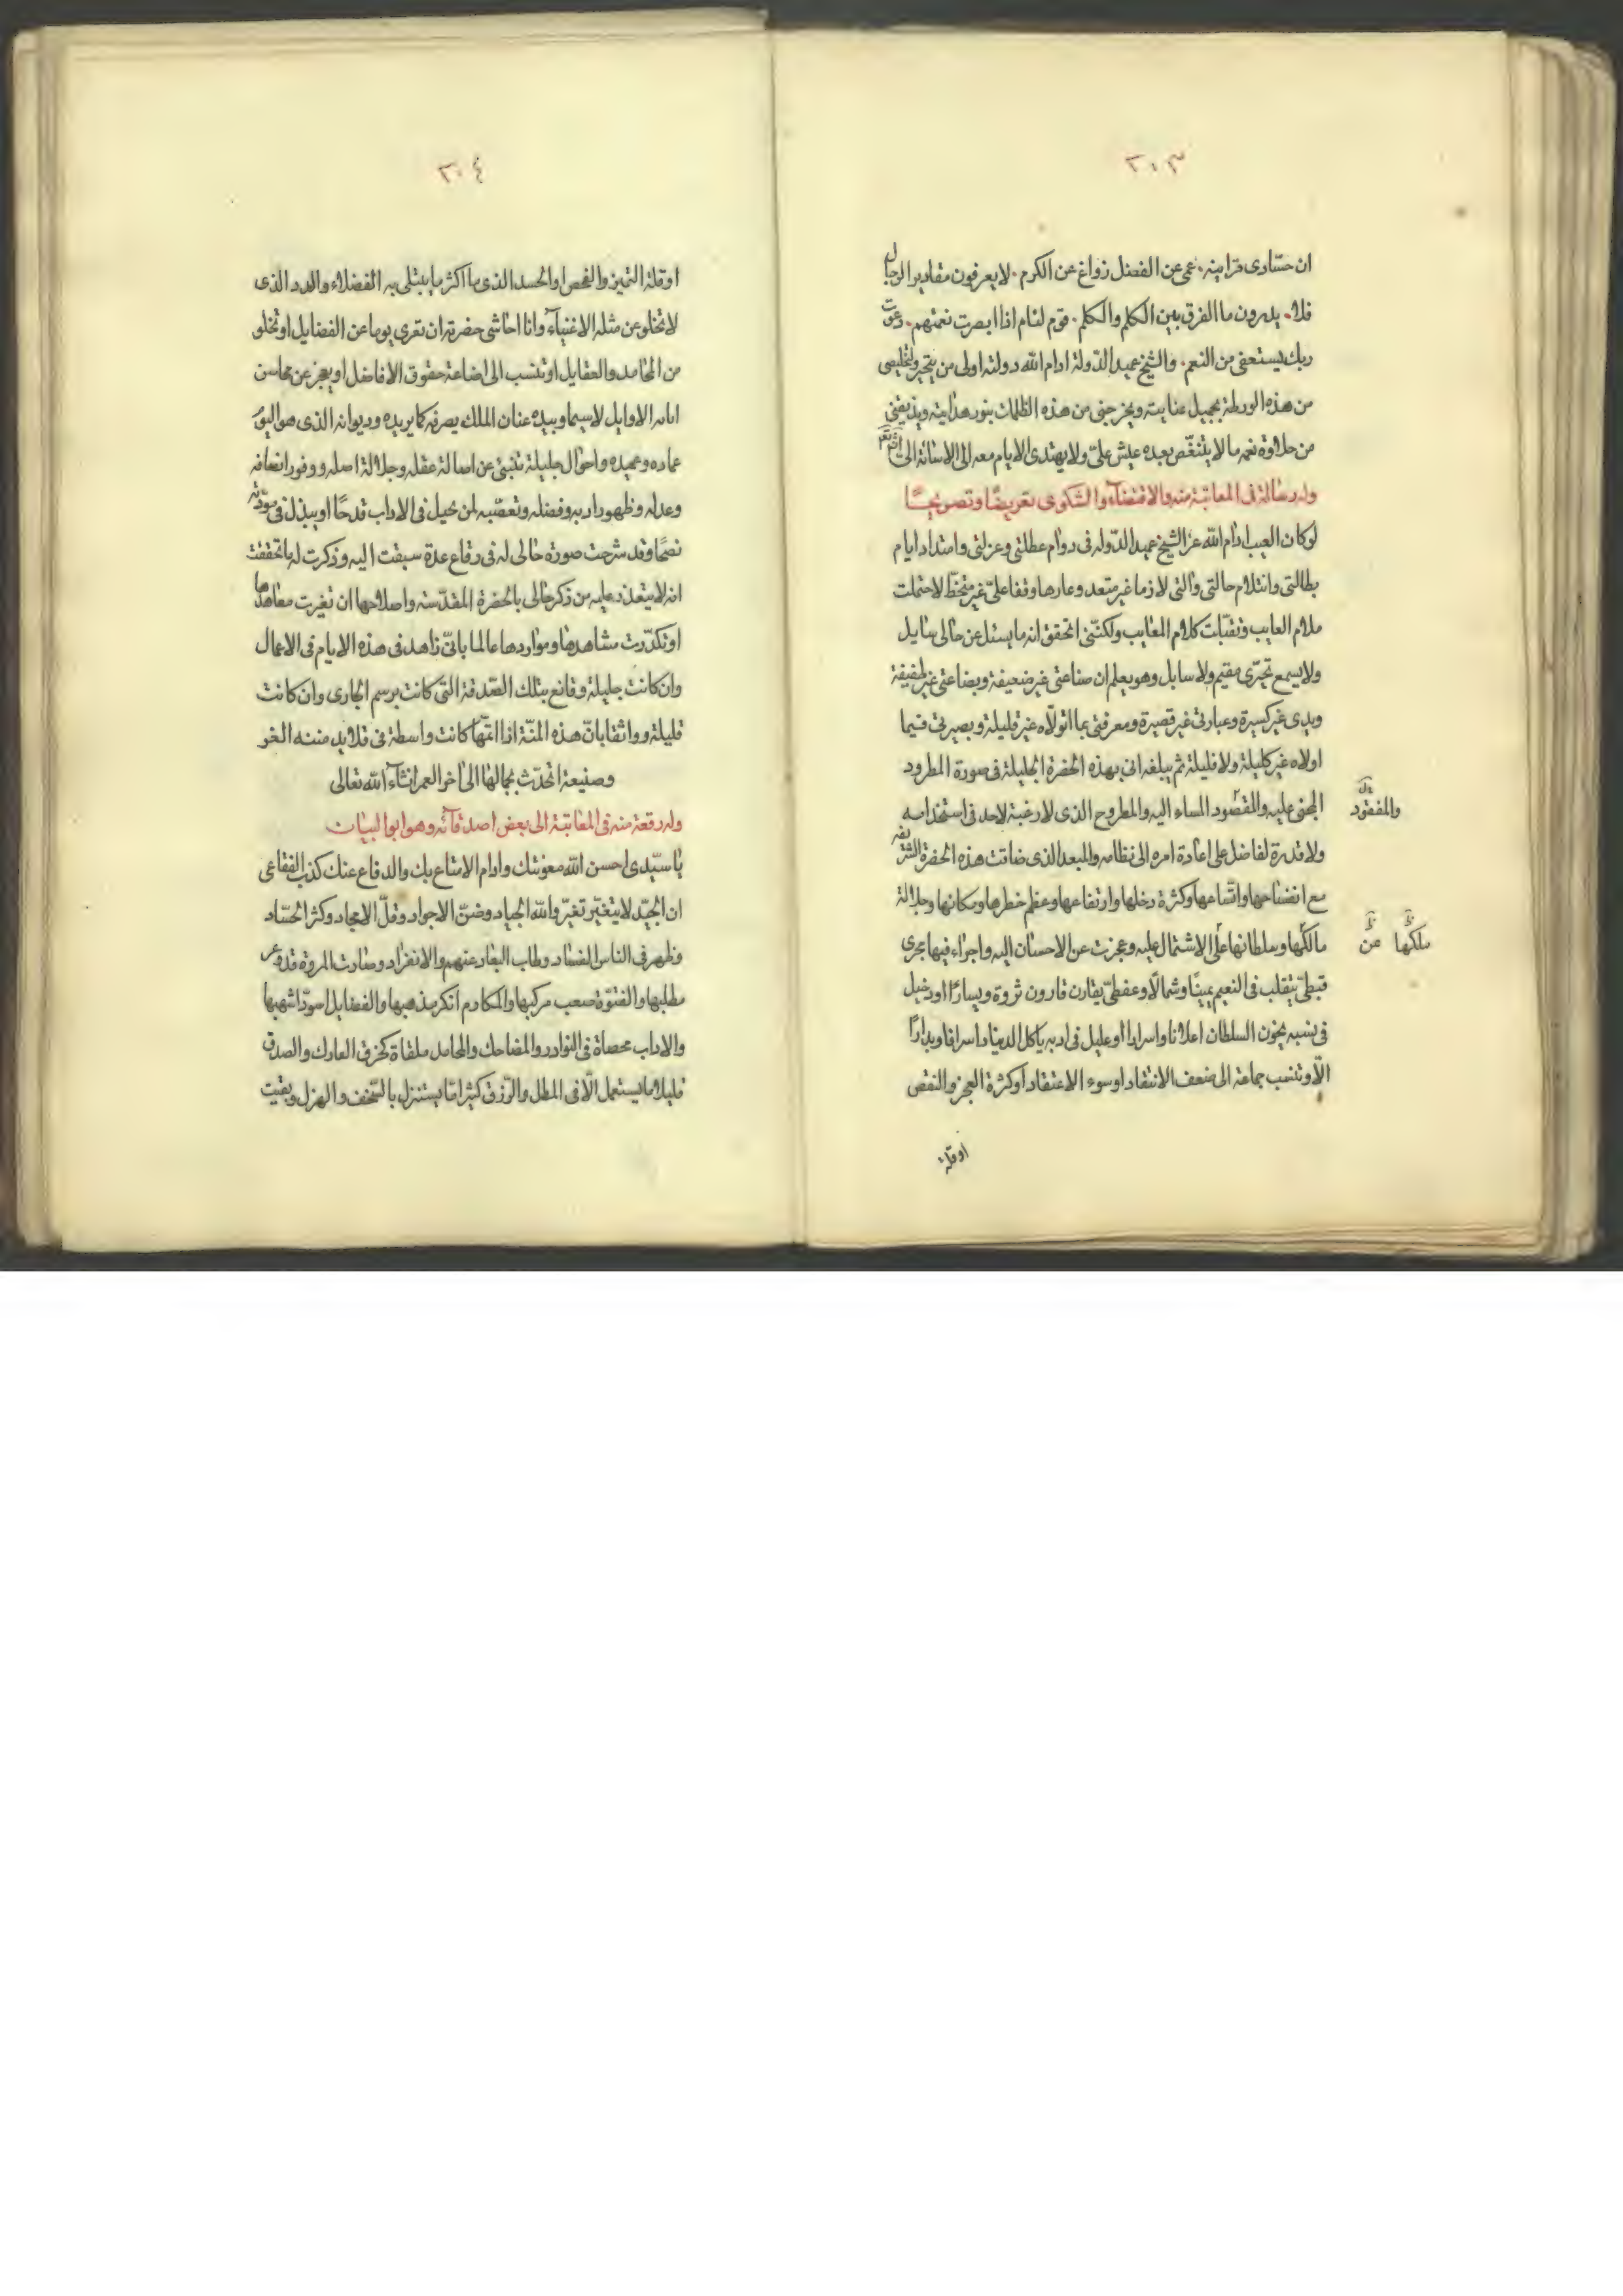 ٣٠٣
ان حسادى قرابينه . عمى عن الفضل زواغ عن الكرم . لا يعرفون مقادير الرجال
فلا يدرون ما الفرق بين الكلم والكلم . قوم لئام اذا ابصرت نعمتهم . دعوت
ربك يستعفى من النعم . والشيخ عميد الدّولة ادام الله دولته اولى من يتخير ولتخليصى
من هذه الورطة بجميل عنايته ويخرجنى من هذه الظلمات بنور هدايته ويذيقنى
من حلاوة نعمه ما لا يتنغّص بعده عيش علىّ ولا يهتدى الايام معه الى الاسائة الىّ
وله رسالة فى المعاتبة منه والاقتضاء والشكوى تعريضًا وتصريحًا
لو كان العيب ادام الله عز الشيخ عميد الدّوله فى دوام عطلتى وعزلتى وامتداد ايام
بطالتى وانثلام حالتى والتى لازما غير متعد وعارها وقفا علىّ غير متخطّ لاحتملت
ملام العايب وتقبّلت كلام المعايب ولكنّنى اتحقق انه ما يسئل عن حالى سايل
ولا يسمع تجرّى مقيم ولا سابل وهو يعلم ان صناعتى غير ضعيفة وبضاعتى غير طفيفة
ويدى غير كسيرة وعبارتى غير قصيرة ومعرفتى بما اتولّاه غير قليلة وبصيرتى فيما
اولاه غير كليلة ولا فليلة ثم يبلغه انى بهذه الحضرة الجليلة فى صورة المطرود
المجنى عليه والمقصود المساء اليه والمطروح الذى لا رغبة لاحد فى استخدامه
والمفقود
ولا قدرة لفاضل على اعادة امره الى نظامه والمبعد الذى ضاقت هذه الحضرة الشريفه
مع انفساحها واتّساعها وكثرة دخلها وارتفاعها وعظم خطرها ومكانها وجلالة
مالكها وسلطانها على الاشتمال عليه وعجزت عن الاحسان اليه واجراء فيها مجرى
ملكها عن
قبطىّ يتقلب فى النعيم يمينًا وشمالًا وعفطىّ يقارن قارون ثروة ويسارًا او دخيل
فى نسبه يخون السلطان اعلانا واسرارا او عليل فى ادبه ياكل الدنيا داسرافا وبدارًا
الّا وتنسب جماعته الى ضعف الانتقاد او سوء الاعتقاد او كثرة العجز والنقص
او قلة
٣٠٤
او قلة التميز والفحص او الحسد الذى ما اكثر ما يبتلى به الفضلاء والدد الذى
لا تخلو عن مثله الاغنياء وانا احاشى حضرته ان تعرى يوما عن الفضايل او تخلو
من المحامد والعقايل او تنسب الى اضاعة حقوق الافاضل او يعجز عن محاسن
الاوايل لا سيما وبيده عنان الملك يصرفه كما يريده وديوانه الذى هو اليوم
عماده وعميده واحوال جليلة تنبئ عن اصالة عقله وجلالة اصله ووفور انصافه
وعدله وظهور ادبه وفضله وتعصّبه لمن يخيل فى الاداب قدحًا او يبذل فى مودّته
نصحًا وقد شرحت صورة حالى له فى رقاع عدة سبقت اليه وذكرت له ما تحققت
انه لا يتعذر عليه من ذكر حالى بالحضرة المقدّسته واصلاحها ان تغيرت معاهدها
او تكدّرت مشاهدها ومواردها عالما بانّى زاهد فى هذه الايام فى الاعمال
وان كانت جليلة وقانع بتلك الصّدقة التى كانت برسم الجارى وان كانت
قليلة وواثقا بانّ هذه المنّة اذا اتمّها كانت واسطة فى قلايد مننه الغر
وصنيعة اتحدّث بجمالها الى اخر العمر انشاء الله تعالى
وله رقعة منه فى المعاتبة الى بعض اصدقائه وهو ابو البيان
يا سيّدى احسن الله معونتك وادام الامتاع بك والدفاع عنك كذب الفقاعى
ان الجيّد لا يتغيّر تغيّر والله الجياد وضنّ الاجواد وقلّ الامجاد وكثر الحسّاد
وظهر فى الناس الفساد وطاب البعاد عنهم والانفراد وصارت المروة قد وعر
مطلبها والفتوّة صعب مركبها والمكارم انكر مذهبها والفضايل اسودّ اشهبها
والاداب محصاة فى النوادر والمضاحك والمحامد ملقاة كخرق العارك والصدق
قليلا ما يستعمل الّا فى المطل والرّزق كثيرا ما يستنزل بالسّخف والهزل وبقيت